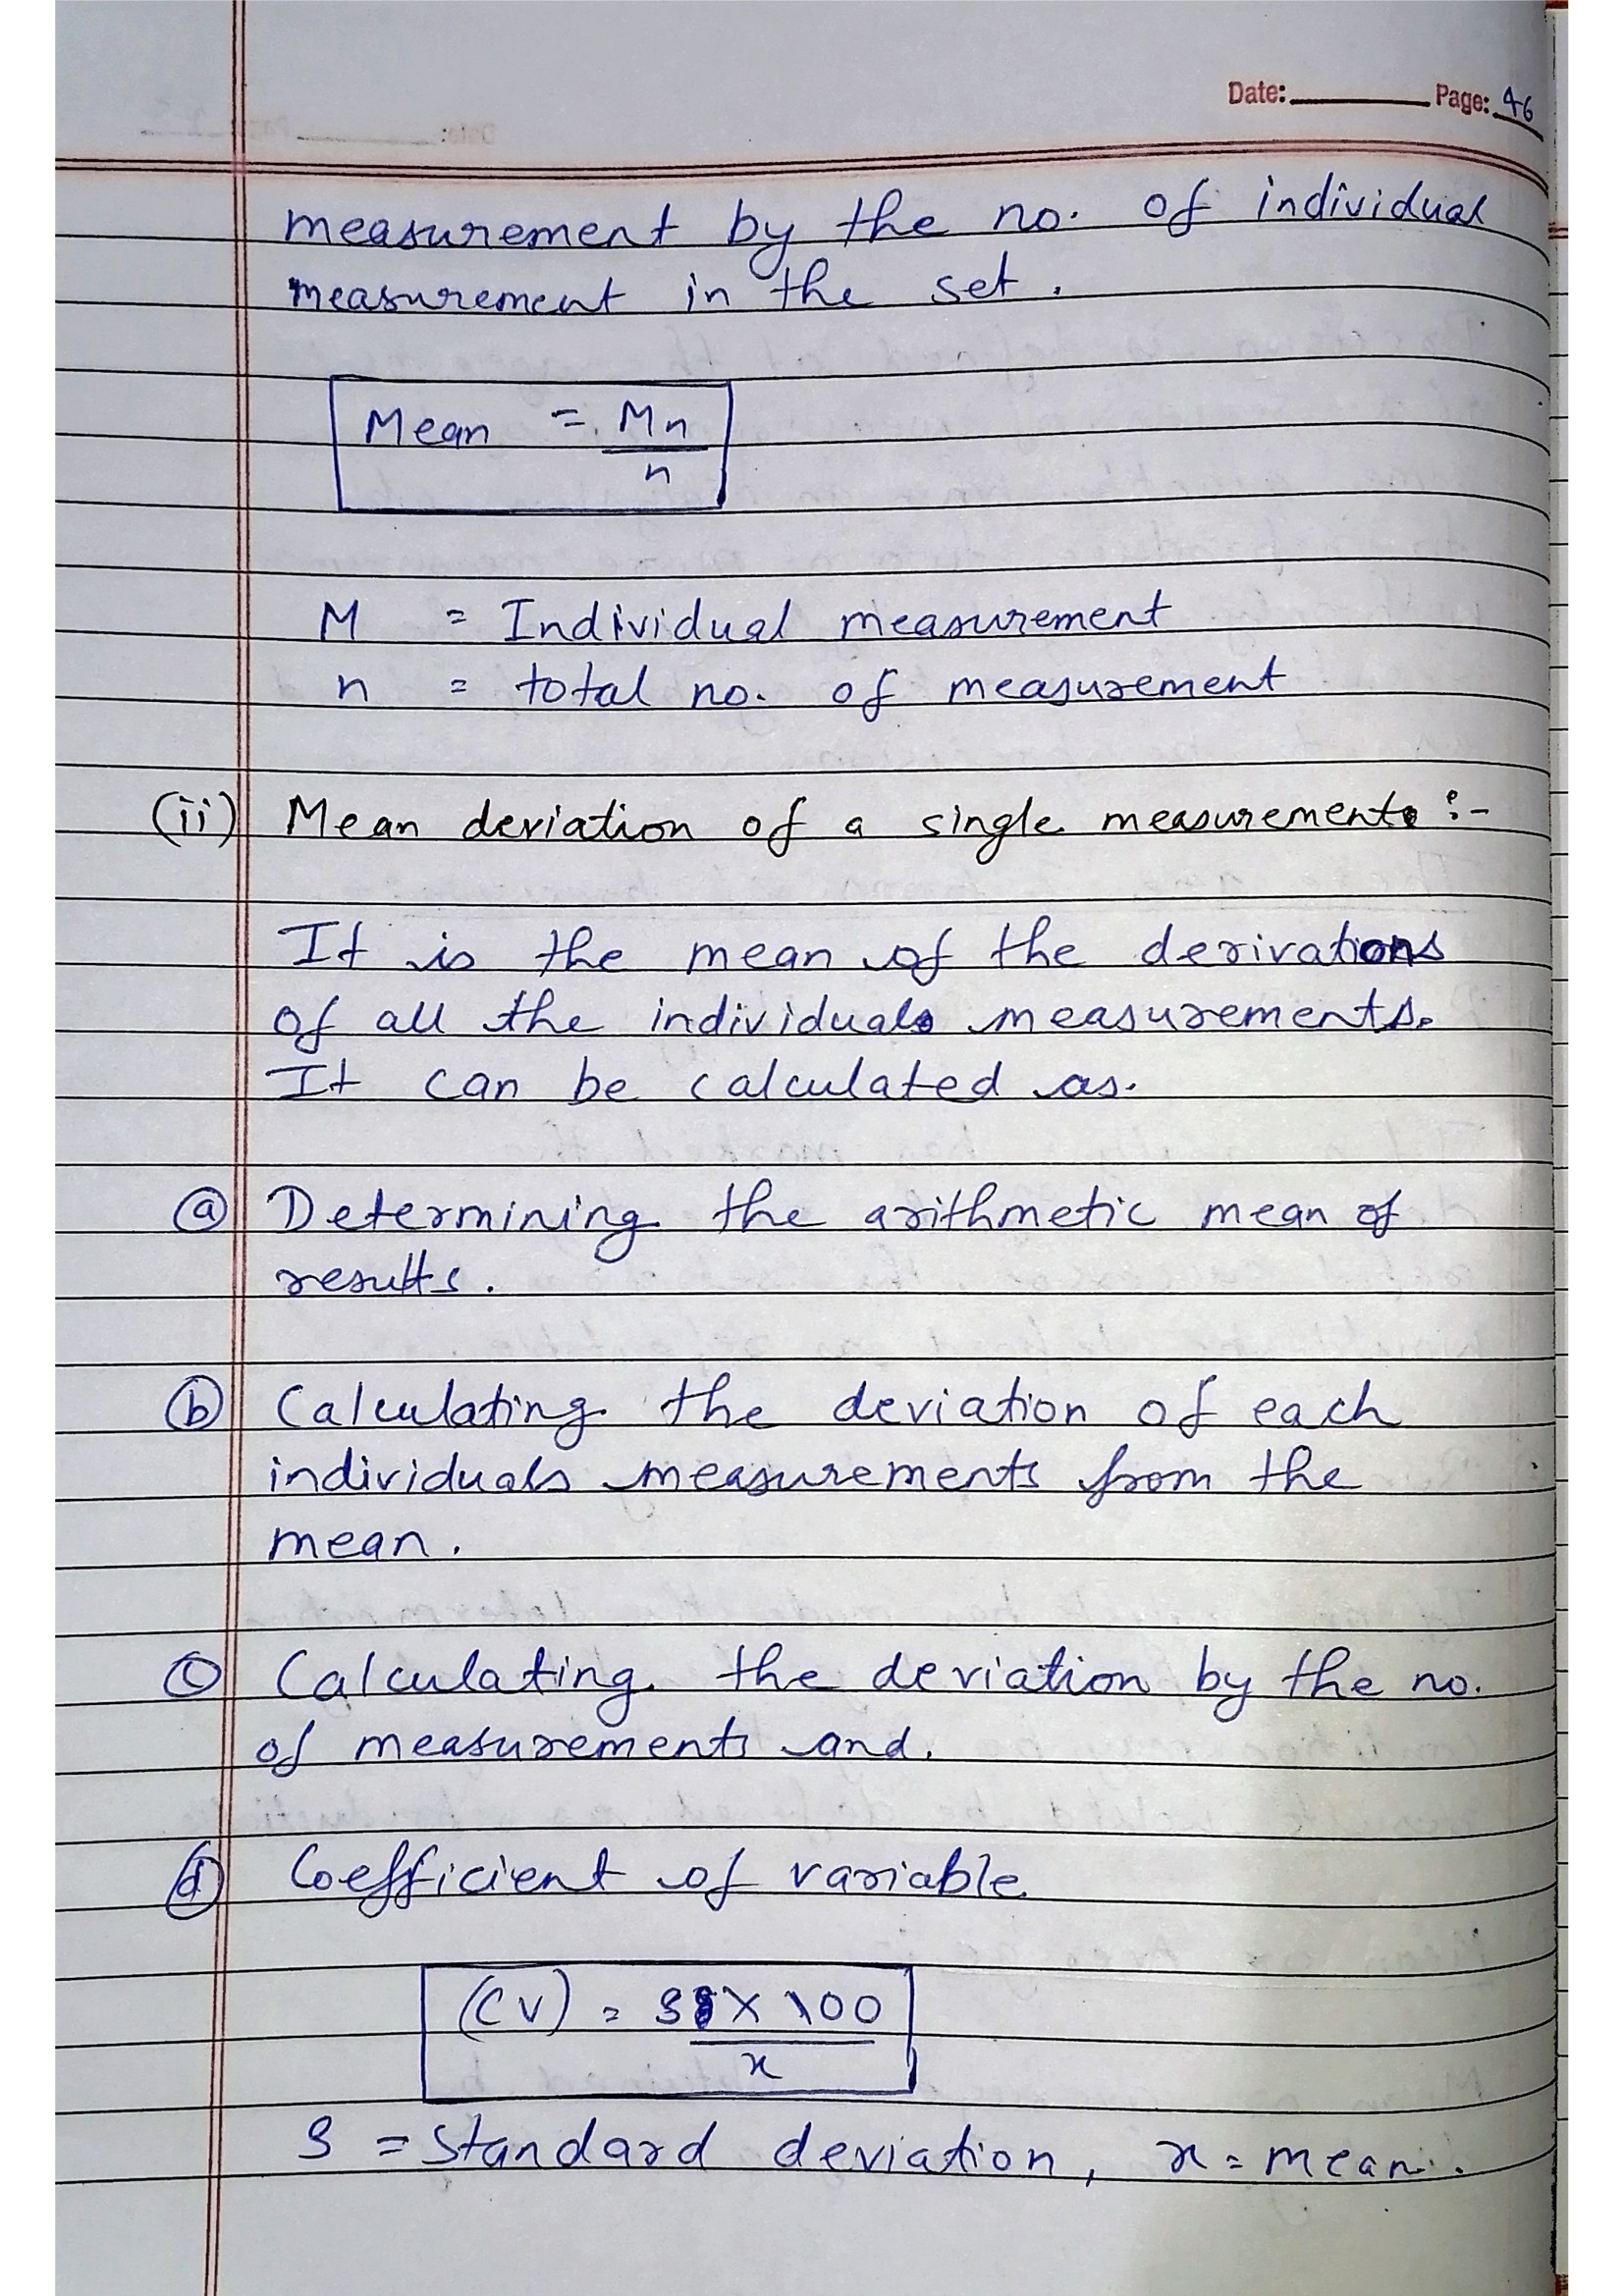 Date: Page: 46
measurement by the no. of individual
measurement in the set.
Mean = Mn
n
M = Individual measurement
n = total no. of measurement
(ii) Mean deviation of a single measurements :-
It is the mean of the derivations
of all the individuals measurements.
It can be calculated as.
(a) Determining the arithmetic mean of
results.
(b) Calculating the deviation of each
individuals measurements from the
mean.
(c) Calculating the deviation by the no.
of measurements and.
(d) Coefficient of variable
(CV) = S X 100
x
S = Standard deviation, x = mean.